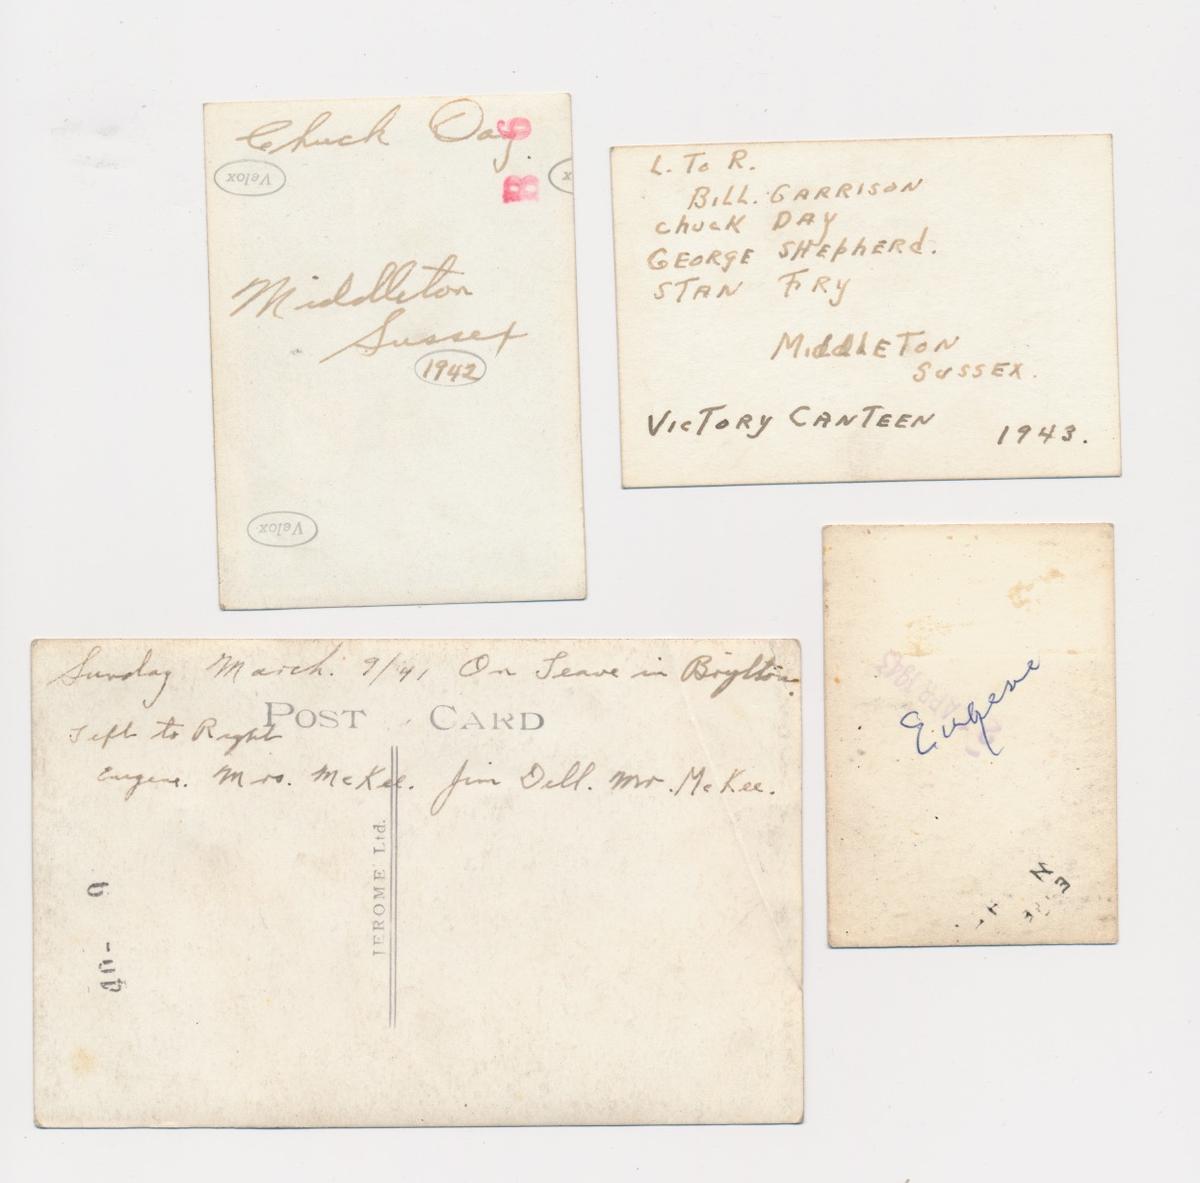 Chuck Day.
B 6
Velox
Middleton
Sussex
1942
Velox
L. To R.
BILL. GARRISON
Chuck DAY
GEORGE SHEPHERD.
STAN FRY
MiddLETON
SUSSEX.
VICTORY CANTEEN 1943.
Sunday March. 9/41 On Leave in Brighton.
POST CARD
Left to Right
Eugene. Mrs. McKee. Jim Dell. Mr. McKee.
JEROME Ltd.
40 - 9
Eugene
APR 1943